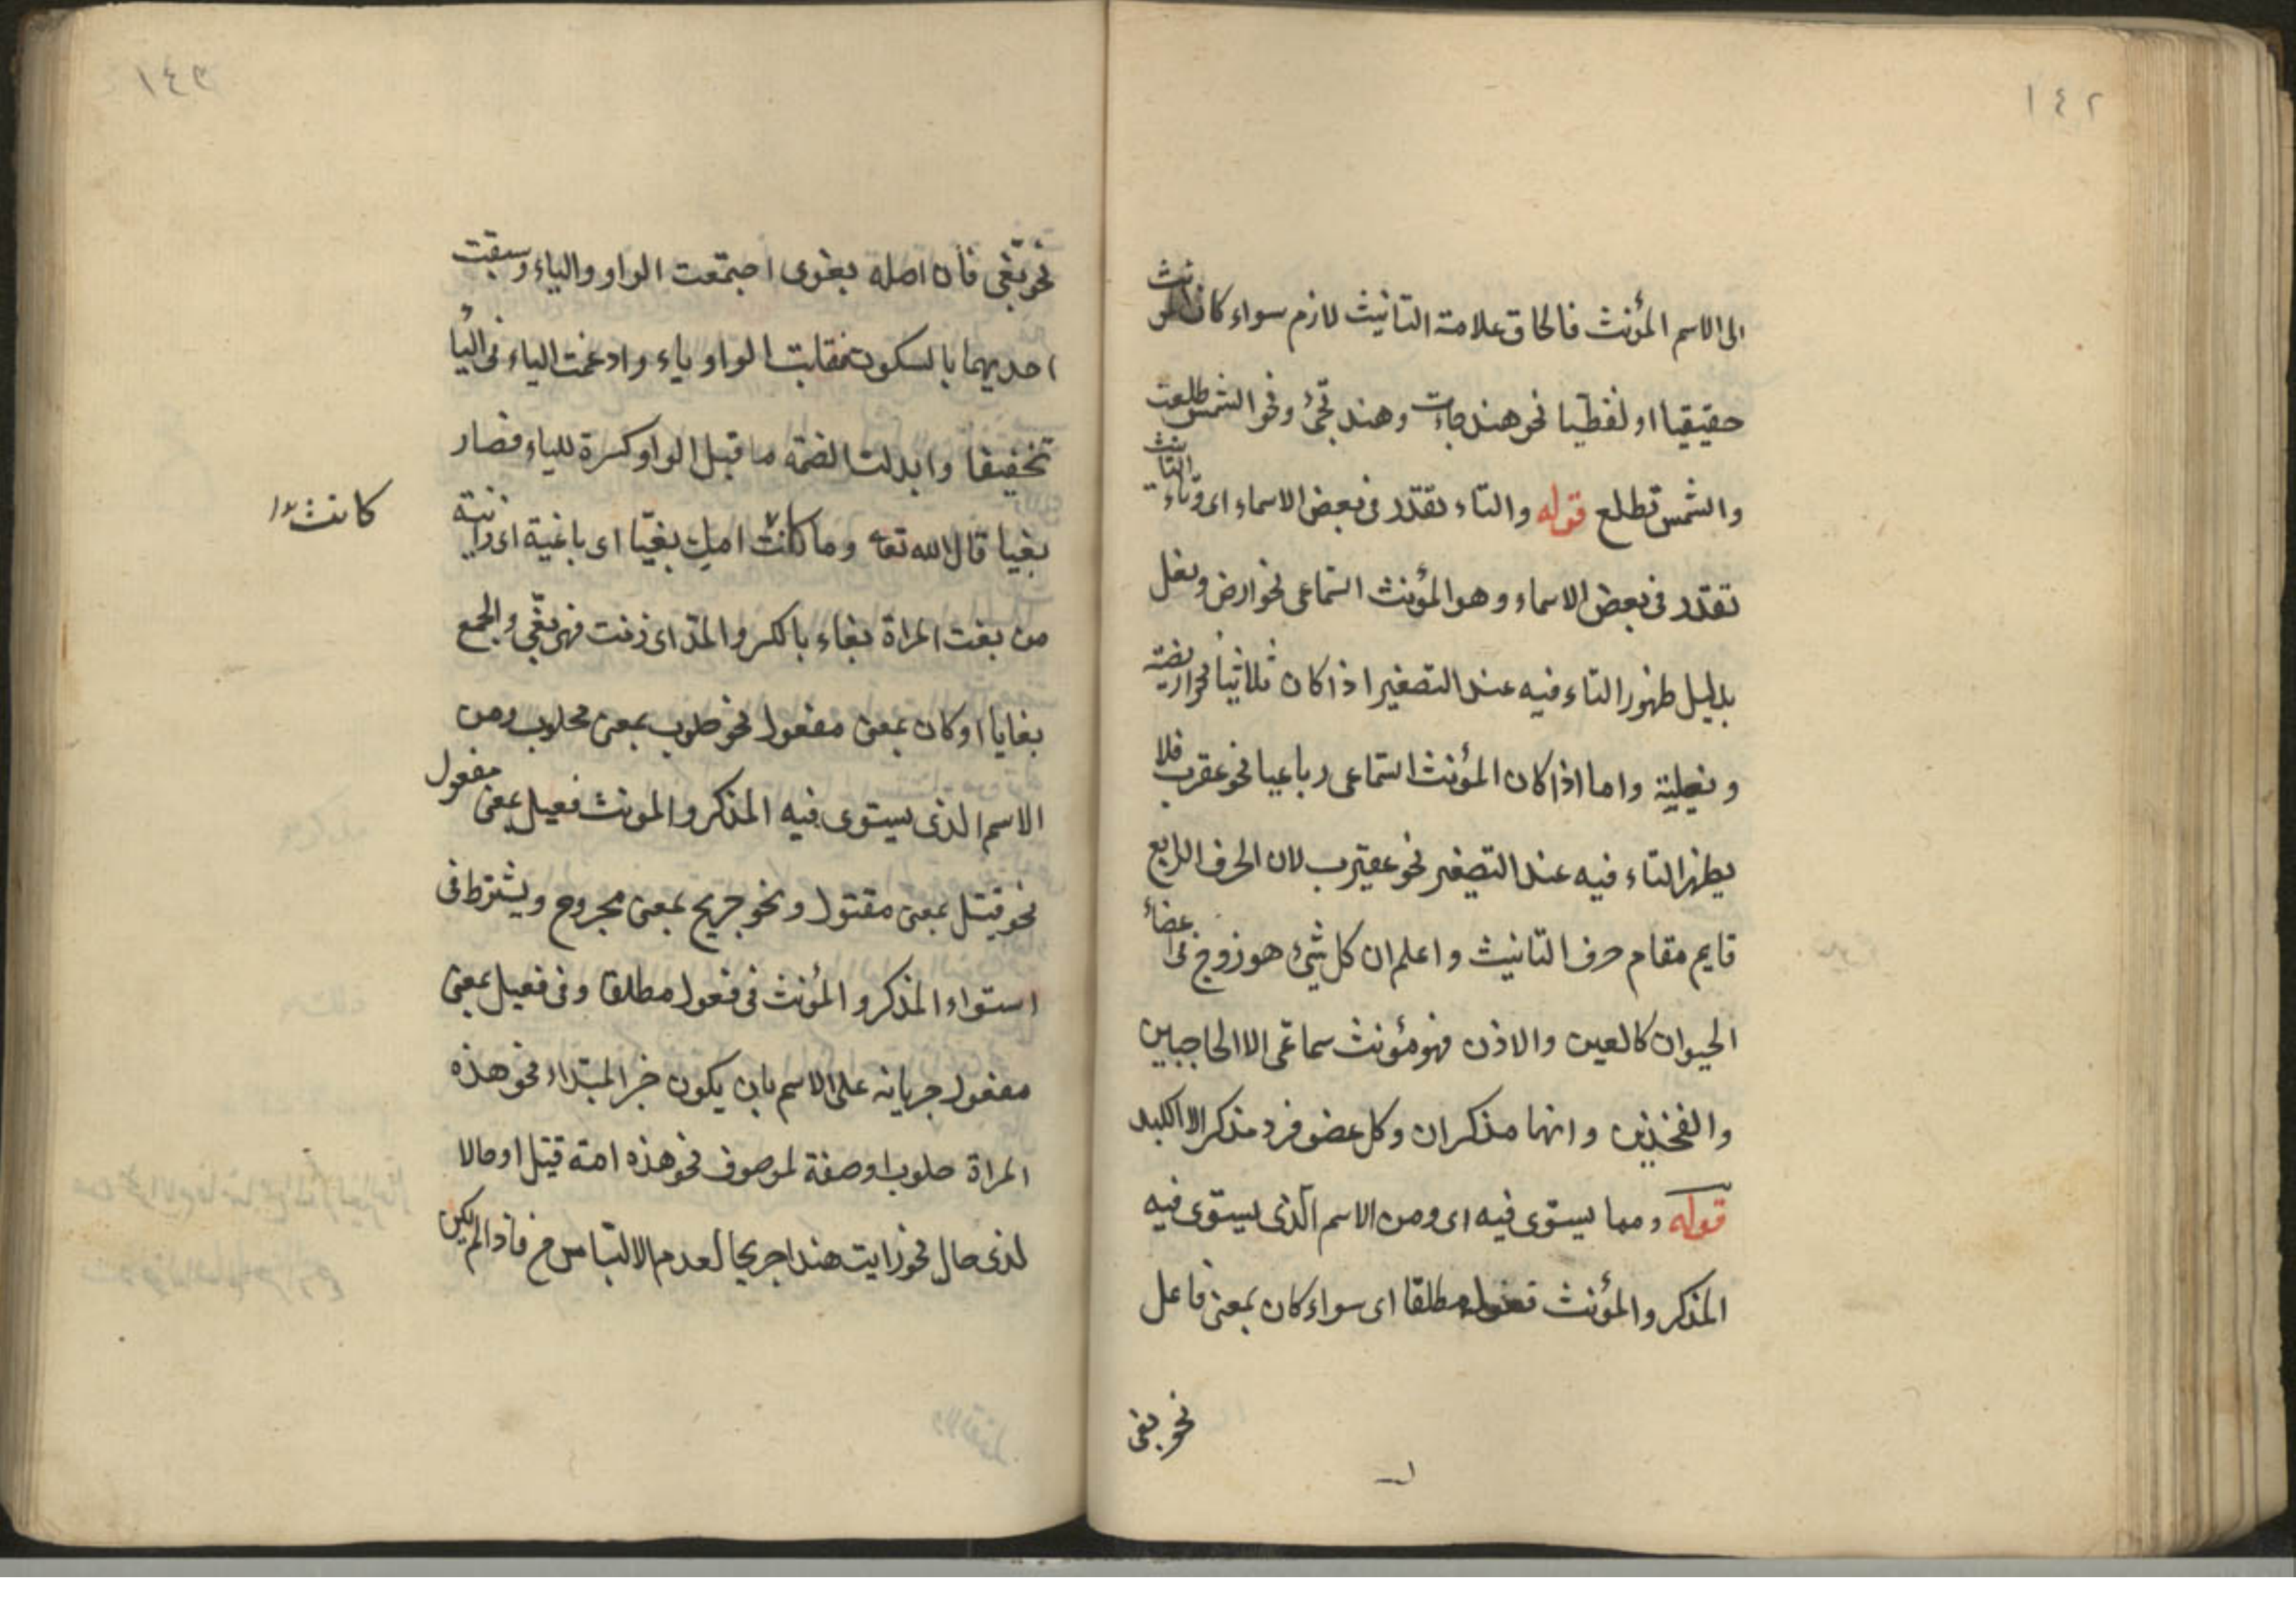 ١٤٢
الى الاسم المؤنث فالحاق علامة التانيث لازم سواء كان المؤنث
حقيقيا او لفظيا نحو هند جاءت وهند تجئ ونحو الشمس طلعت
والشمس تطلع قوله والتاء تقدر فى بعض الاسماء اى وتاء التانيث
تقدر فى بعض الاسماء وهو المؤنث السماعى نحو ارض ونعل
بدليل ظهور التاء فيه عند التصغير اذا كان ثلاثيا نحو اريضة
ونعيلة واما اذا كان المؤنث السماعى رباعيا نحو عقرب فلا
يظهر التاء فيه عند التصغير نحو عقيرب لان الحرف الرابع
قايم مقام حرف التانيث واعلم ان كل شئ هو زوج فى اعضاء
الحيوان كالعين والاذن فهو مؤنث سماعى الا الحاجبين
والفخذين وانهما مذكران وكل عضو فرد مذكر الا الكبد
قوله ومما يستوى فيه اى ومن الاسم الذى يستوى فيه
المذكر والمؤنث فعول مطلقا اى سواء كان بمعنى فاعل
نحو بغى
١٤٣
نحو بغى فان اصله بغوى اجتمعت الواو والياء وسبقت
احديهما بالسكون فقلبت الواو ياء وادغمت الياء فى الياء
تخفيفا وابدلت الضمة ما قبل الواو كسرة للياء فصار
بغيا قال الله تعه وما كانت امك بغيا اى باغية اى زانية
كانت
من بغت المراة بغاء بالكسر والمد اى زنت فهى بغى والجمع
بغايا او كان بمعنى مفعول نحو حلوب بمعنى محلوب ومن
الاسم الذى يستوى فيه المذكر والمونث فعيل بمعنى مفعول
نحو قتيل بمعنى مقتول ونحو جريح بمعنى مجروح ويشترط فى
استواء المذكر والمؤنث فى فعول مطلقا وفى فعيل بمعنى
مفعول جريانه على الاسم بان يكون خبر المبتداء نحو هذه
المراة حلوب او صفة لموصوف نحو هذه امة قتيل او حالا
لذى حال نحو رايت هندا جريحا لعدم الالتباس ح فاذا لم يكن